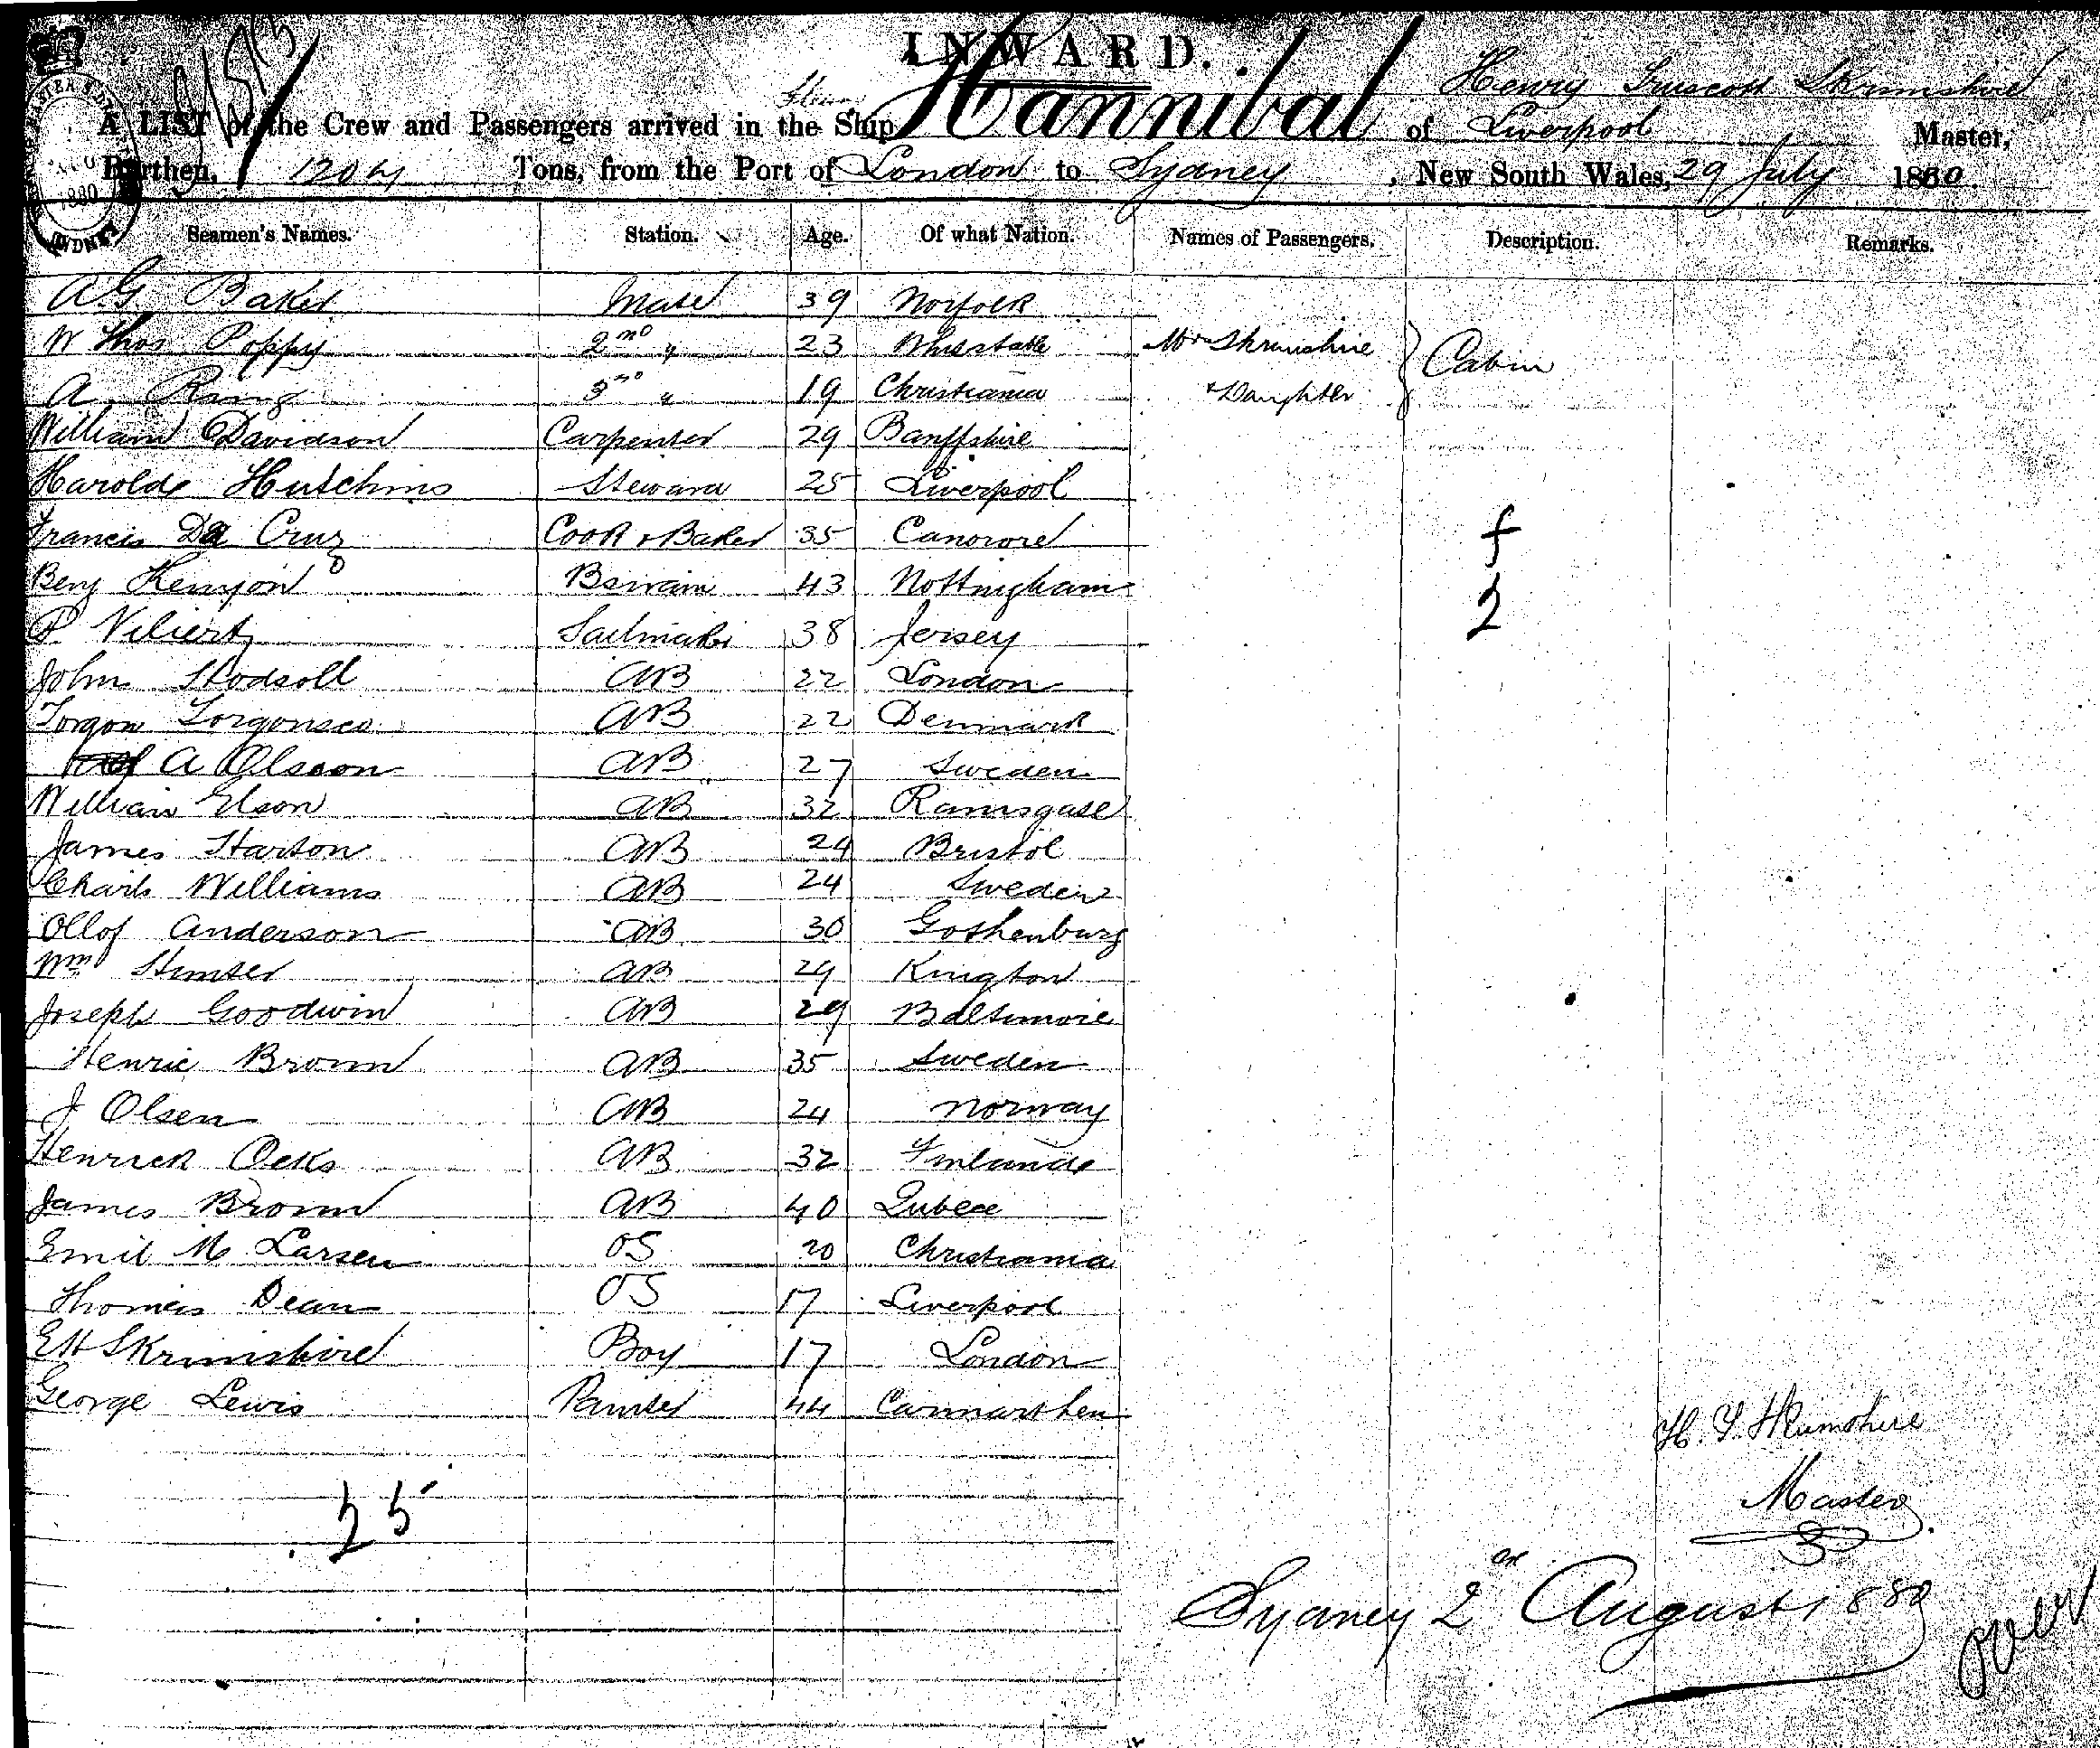 INWARD.
A LIST of the Crew and Passengers arrived in the Ship Hannibal of Liverpool Henry Truscott Skrimshire Master,
Burthen, 1204 Tons, from the Port of London to Sydney, New South Wales, 29 July 1880
Seamen's Names. Station. Age. Of what Nation. Names of Passengers. Description. Remarks.
A G Baker Mate 39 Norfolk
W Thos Poppy 2nd " 23 Whitstable Mrs Skrimshire Cabin
A. Ring 3rd " 19 Christiania & Daughter
William Davidson Carpenter 29 Banffshire
Harold Hutchins Steward 25 Liverpool
Francis Da Cruz Cook & Baker 35 f
Benj Kenyon Bswain 43 Nottingham 2
P. Sailmaker 38 Jersey
John Stodsoll AB 22 London
Torgon AB 22 Denmark
A Olsson AB 27 Sweden
William Elson AB 32 Ramsgate
James Harton AB 24 Bristol
Charls Williams AB 24 Sweden
Ollof Anderson AB 30 Gothenburg
Wm Hunter AB 29 Kington
Joseph Goodwin AB 29 Baltimore
Henric Brown AB 35 Sweden
J Olsen AB 24 Norway
Henrick Ocks AB 32 Finland
James Brown AB 40 Qubec
Emil M. Larsen OS 20 Christiania
Thomas Dean OS 17 Liverpool
E H Skrimshire Boy 17 London
George Lewis Painter 44 Carmarthen
H. T. Skrimshire
Master
25
Sydney 2nd August 1880
over